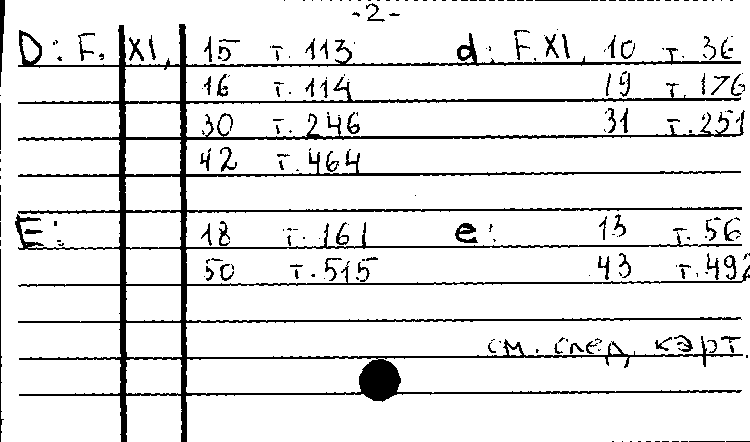 -2-
D: F. XI, 15 т. 113 d: F. XI, 10 т. 36
16 т. 114 19 т. 176
30 т. 246 31 т. 251
42 т. 464
E: 18 т. 161 e: 13 т. 56
50 т. 515 43 т. 492
см. след. карт.